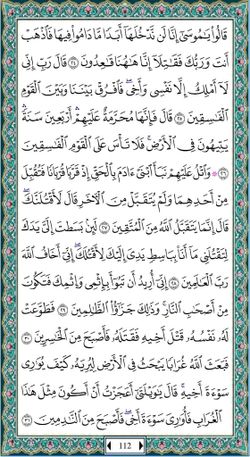 قَالُوا۟ يَـٰمُوسَىٰٓ إِنَّا لَن نَّدْخُلَهَآ أَبَدًا مَّا دَامُوا۟ فِيهَا فَٱذْهَبْ
أَنتَ وَرَبُّكَ فَقَـٰتِلَآ إِنَّا هَـٰهُنَا قَـٰعِدُونَ ٢٤ قَالَ رَبِّ إِنِّى
لَآ أَمْلِكُ إِلَّا نَفْسِى وَأَخِى فَٱفْرُقْ بَيْنَنَا وَبَيْنَ ٱلْقَوْمِ
ٱلْفَـٰسِقِينَ ٢٥ قَالَ فَإِنَّهَا مُحَرَّمَةٌ عَلَيْهِمْ أَرْبَعِينَ سَنَةً
يَتِيهُونَ فِى ٱلْأَرْضِ فَلَا تَأْسَ عَلَى ٱلْقَوْمِ ٱلْفَـٰسِقِينَ
٢٦ وَٱتْلُ عَلَيْهِمْ نَبَأَ ٱبْنَىْ ءَادَمَ بِٱلْحَقِّ إِذْ قَرَّبَا قُرْبَانًا فَتُقُبِّلَ
مِنْ أَحَدِهِمَا وَلَمْ يُتَقَبَّلْ مِنَ ٱلْـَٔاخَرِ قَالَ لَأَقْتُلَنَّكَ
قَالَ إِنَّمَا يَتَقَبَّلُ ٱللَّهُ مِنَ ٱلْمُتَّقِينَ ٢٧ لَئِنۢ بَسَطتَ إِلَىَّ يَدَكَ
لِتَقْتُلَنِى مَآ أَنَا۠ بِبَاسِطٍ يَدِىَ إِلَيْكَ لِأَقْتُلَكَ إِنِّىٓ أَخَافُ ٱللَّهَ
رَبَّ ٱلْعَـٰلَمِينَ ٢٨ إِنِّىٓ أُرِيدُ أَن تَبُوٓأَ بِإِثْمِى وَإِثْمِكَ فَتَكُونَ
مِنْ أَصْحَـٰبِ ٱلنَّارِ وَذَٰلِكَ جَزَٰٓؤُا۟ ٱلظَّـٰلِمِينَ ٢٩ فَطَوَّعَتْ
لَهُۥ نَفْسُهُۥ قَتْلَ أَخِيهِ فَقَتَلَهُۥ فَأَصْبَحَ مِنَ ٱلْخَـٰسِرِينَ ٣٠
فَبَعَثَ ٱللَّهُ غُرَابًا يَبْحَثُ فِى ٱلْأَرْضِ لِيُرِيَهُۥ كَيْفَ يُوَٰرِى
سَوْءَةَ أَخِيهِ قَالَ يَـٰوَيْلَتَىٰٓ أَعَجَزْتُ أَنْ أَكُونَ مِثْلَ هَـٰذَا
ٱلْغُرَابِ فَأُوَٰرِىَ سَوْءَةَ أَخِى فَأَصْبَحَ مِنَ ٱلنَّـٰدِمِينَ ٣١
112